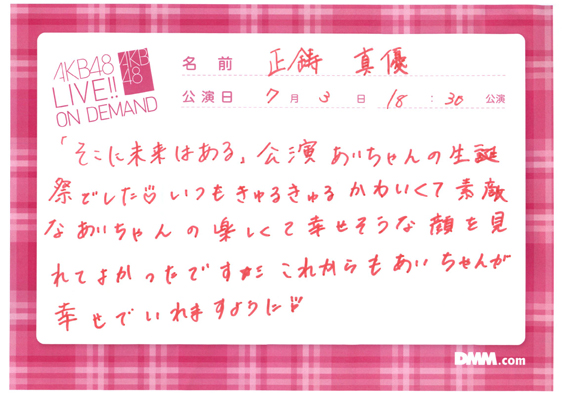 AKB48
LIVE!!
ON DEMAND
AKB
48
名前 正鋳 真優
公演日 7月3日 18:30 公演
「そこに未来はある」公演 あいちゃんの生誕
祭でした♡いつもきゅるきゅるかわいくて素敵
なあいちゃんの楽しくて幸せそうな顔を見
れてよかったです☆ これからもあいちゃんが
幸せでいれますように♡
DMM.com